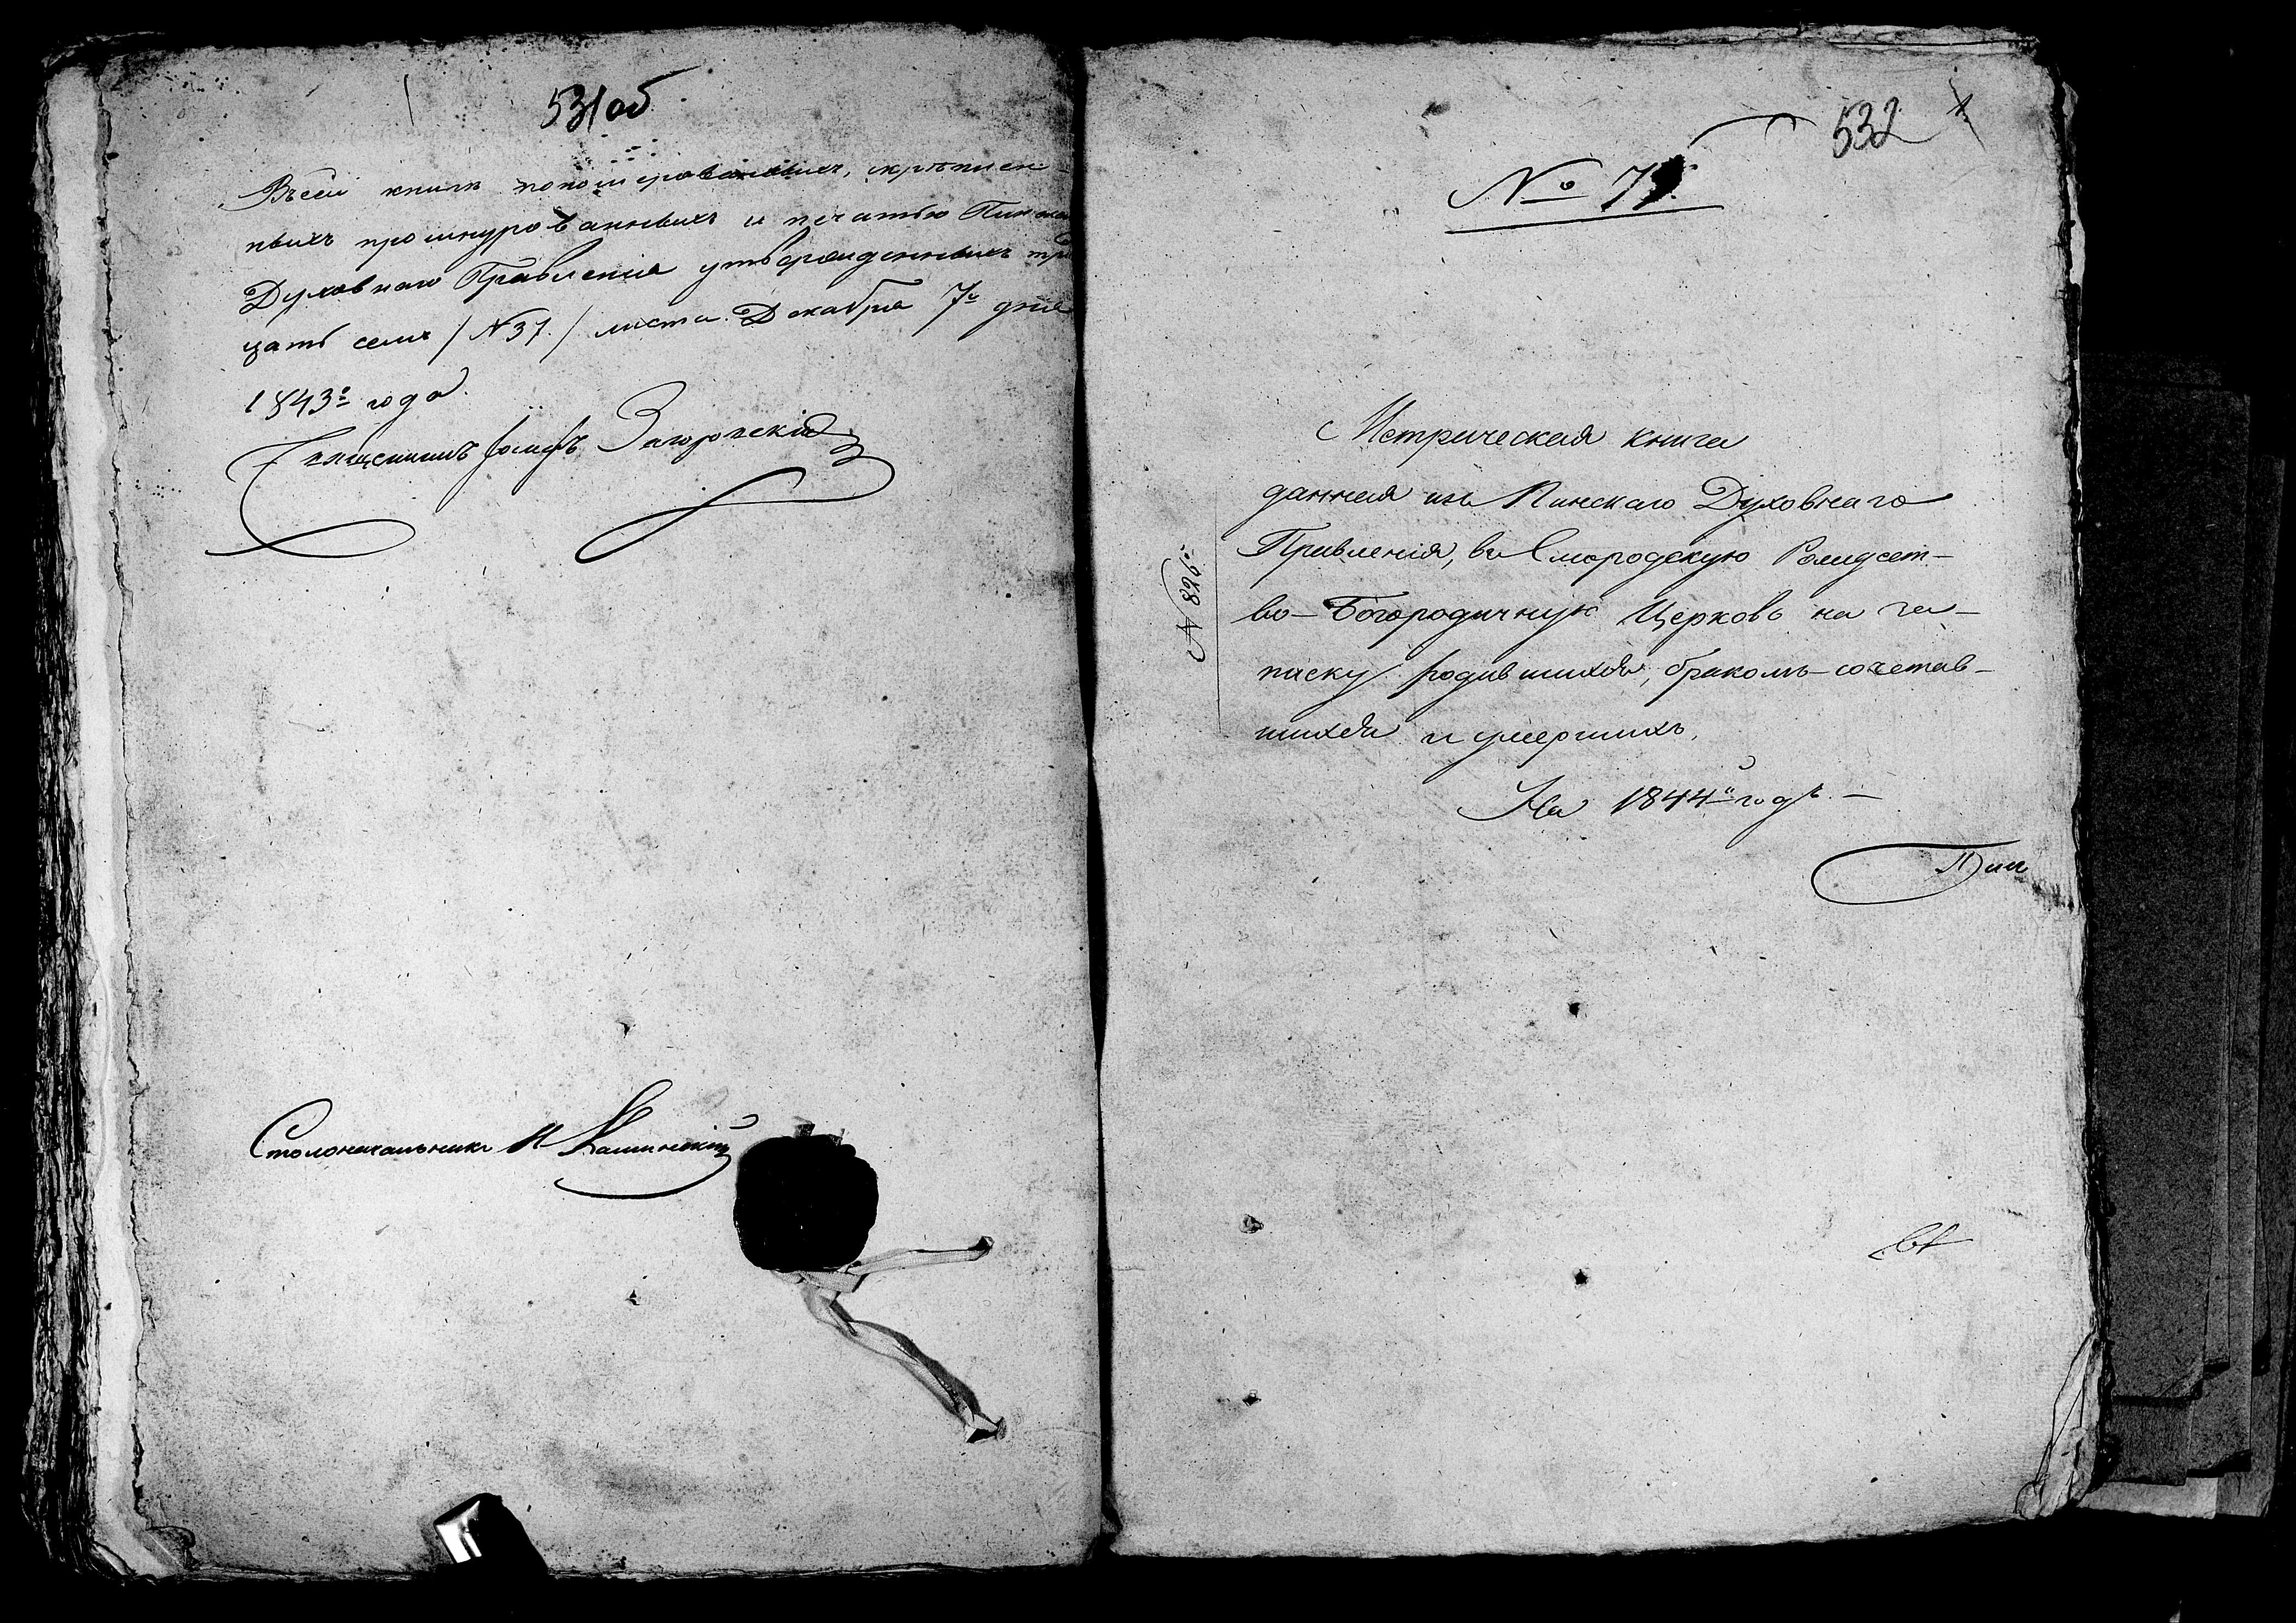 531об
Въ сей книги пономерованныхъ, скрѣплен-
ныхъ прошнурованныхъ и печатью Пинска
Духовнаго Правленія утвержденныхъ тр
цать семь / N 37. / листа. Декабря 7º дня
1843º года.
Священникъ Іосифъ Загоровскій
Столоначальникъ Н
532
№ 7
N 826.
Метрическая книга
данная изъ Пинскаго Духовнаго
Правленія, въ Смородскую Рождест-
во-Богородичную Церковь на за-
писку родившихся, бракомъ-сочетав-
шихся и умершихъ,
На 1844й годъ. —
Пин